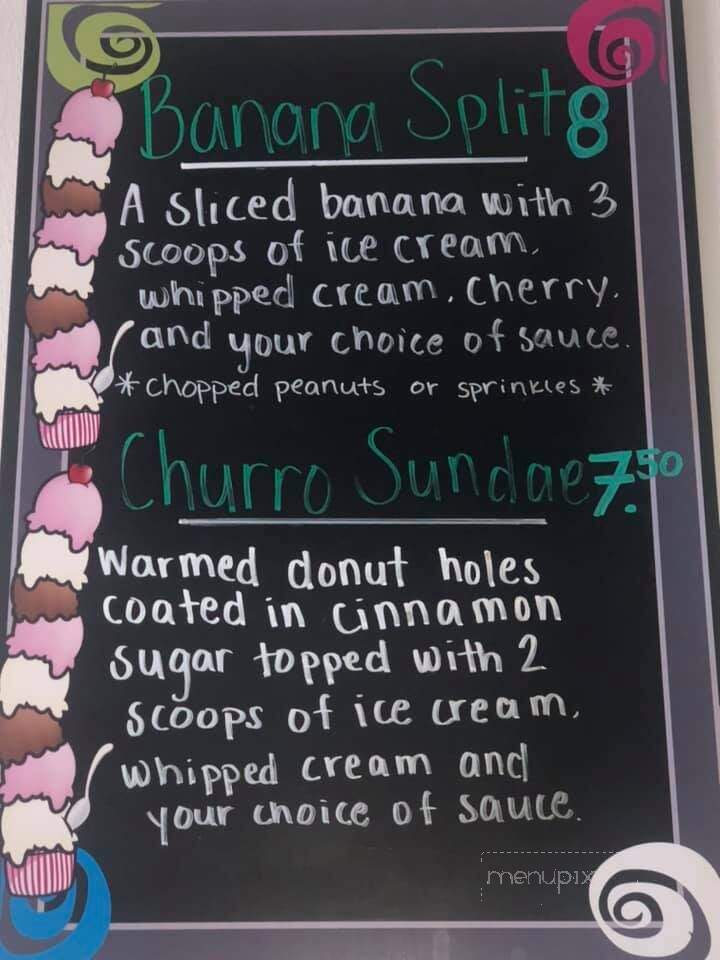 Banana Split 8
A sliced banana with 3
scoops of ice cream,
whipped cream, cherry,
and your choice of sauce.
*chopped peanuts or sprinkles*
Churro Sundae 7.50
Warmed donut holes
coated in cinnamon
sugar topped with 2
scoops of ice cream,
whipped cream and
your choice of sauce.
menupix